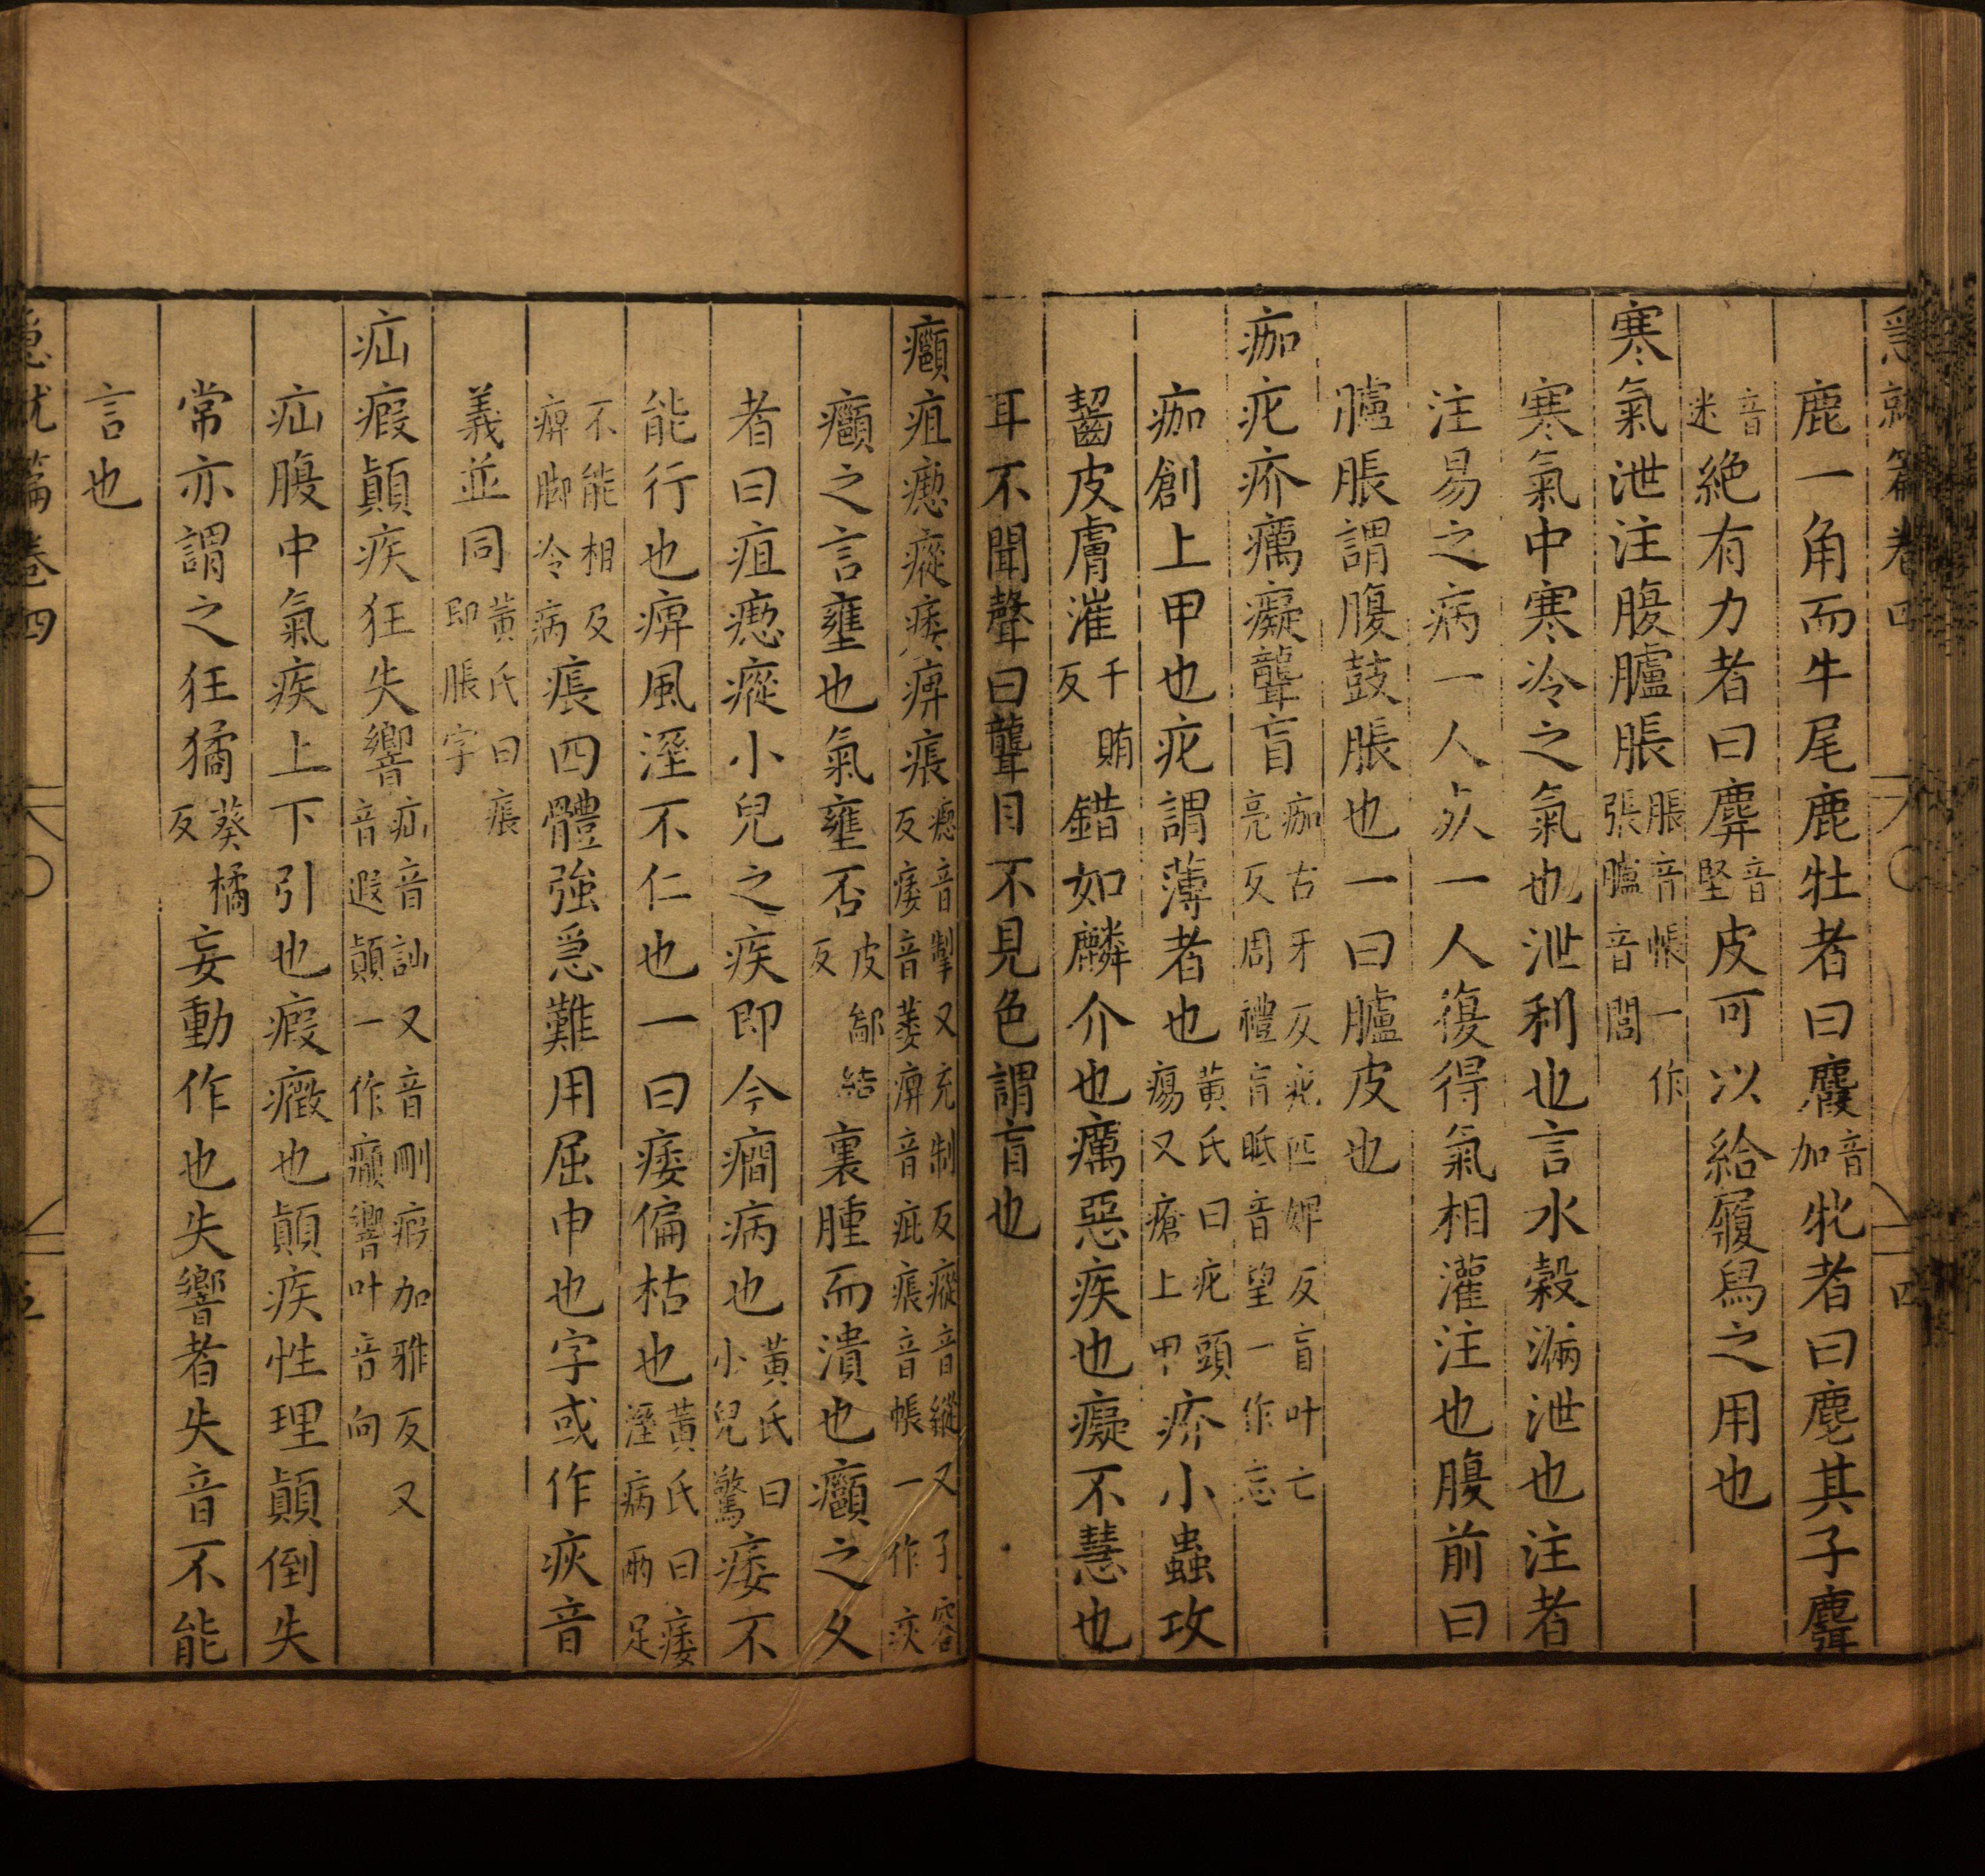 急就篇卷四
鹿一角而牛尾鹿牡者曰麚音加牝者曰麀其子麛
音迷絶有力者曰麉音堅皮可以給履舄之用也
寒氣泄注腹臚脹脹音帳一作張臚音閭
寒氣中寒冷之氣也泄利也言水榖漏泄也注者
注易之病一人死一人復得氣相灌注也腹前曰
臚脹謂腹鼓脹也一曰臚皮也
痂疕疥癘癡聾盲痂古牙反疕匹婢反盲叶亡亮反周禮盲眂音望一作忘
痂創上甲也疕謂薄者也黃氏曰疕頭瘍又瘡上甲疥小蟲攻
齧皮膚漼千賄反錯如麟介也癘惡疾也癡不慧也
耳不聞聲曰聾目不見色謂盲也
癰疽瘛瘲痿痹痮瘛音掣又充制反瘲音縱又子容反痿音萎痹音疵痮音帳一作疢
癰之言壅也氣壅否皮鄙反結裏腫而潰也癰之久
者曰疽瘛瘲小兒之疾即今癎病也黃氏曰小兒驚痿不
能行也痹風溼不仁也一曰痿偏枯也黃氏曰痿溼病兩足
不能相及痹脚冷病痮四體強急難用屈申也字或作疢音
義並同黃氏曰痮即脹字
疝瘕顚疾狂失響疝音訕又音刪瘕加雅反又音遐顚一作癲響叶音向
疝腹中氣疾上下引也瘕癥也顚疾性理顚倒失
常亦謂之狂獝葵橘反妄動作也失響者失音不能
言也
急就篇卷四
五